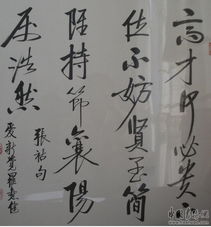 高才何必貴下
位不妨賢孟簡
雖持節襄陽
属浩然
張祜句
愛新覺羅